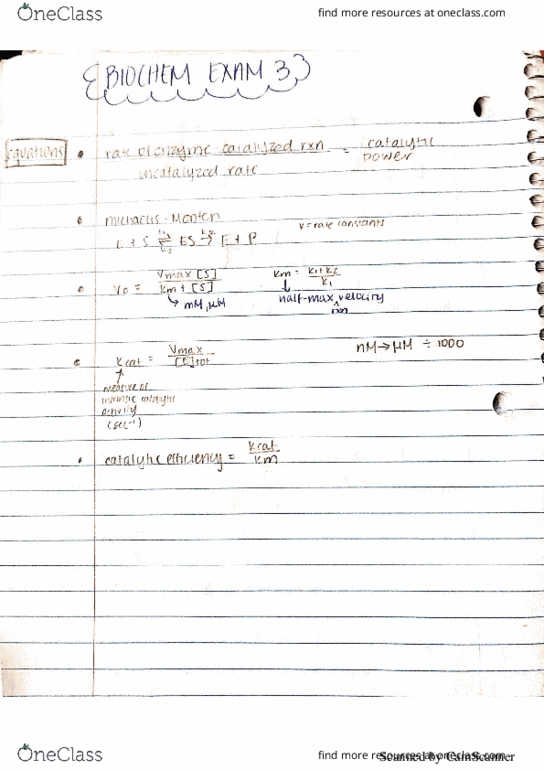 OneClass
find more resources at oneclass.com
BIOCHEM EXAM 3
Equations
• rate of enzyme-catalyzed rxn / uncatalyzed rate = catalytic power
• Michaelis-Menten
k = rate constants
E + S ⇌ ES → E + P
• Vo = Vmax [S] / Km + [S]
→ mM, μM
Km = k-1 + k2 / k1
↓
half-max velocity
rxn
• Kcat = Vmax / [E]tot
nM → μM ÷ 1000
↑
measure of
intrinsic catalytic
activity
(sec⁻¹)
• catalytic efficiency = Kcat / Km
OneClass
find more resources at oneclass.com
Scanned by CamScanner